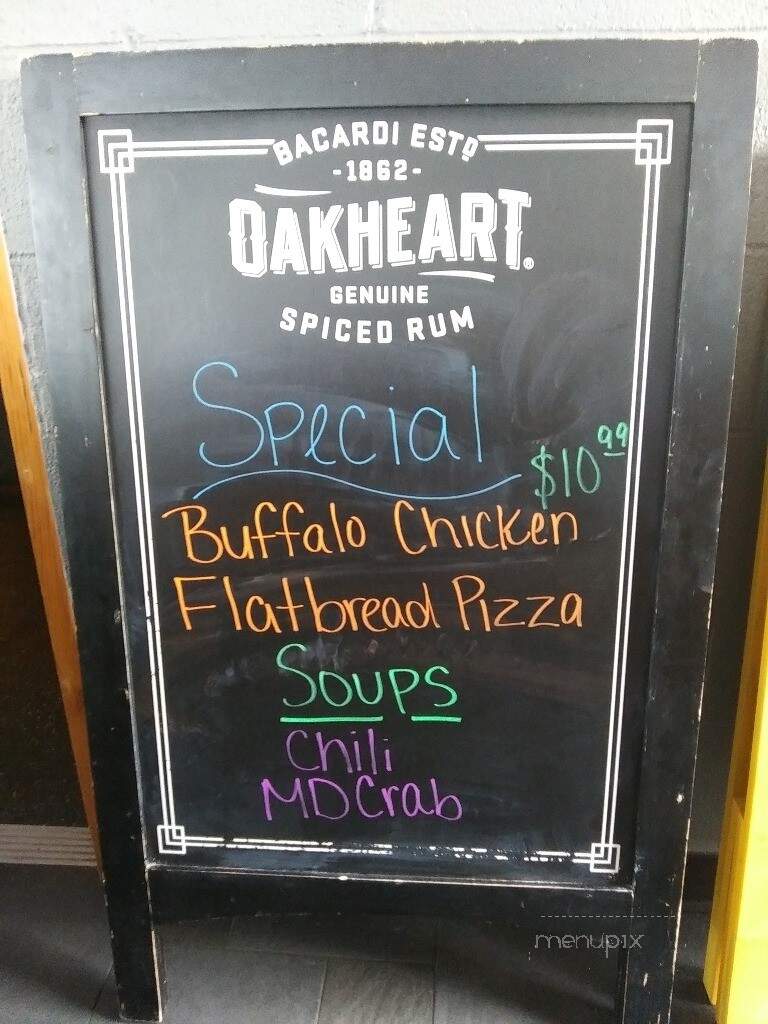 BACARDI ESTD
-1862-
OAKHEART®
GENUINE
SPICED RUM
Special
$10.99
Buffalo Chicken
Flatbread Pizza
Soups
Chili
MD Crab
menupix